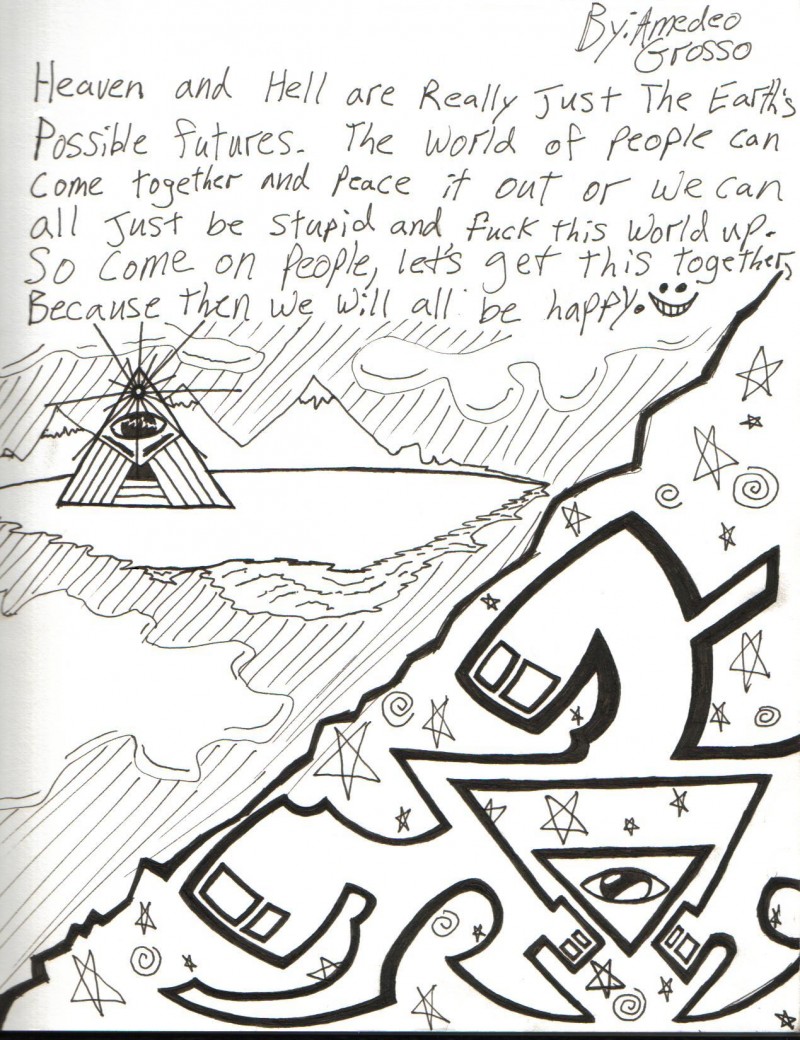 By: Amedeo
Grosso
Heaven and Hell are Really Just The Earth's
Possible futures. The World of people can
Come together and Peace it out or we can
all Just be stupid and fuck this world up.
So come on People, let's get this together,
Because then we will all be happy.